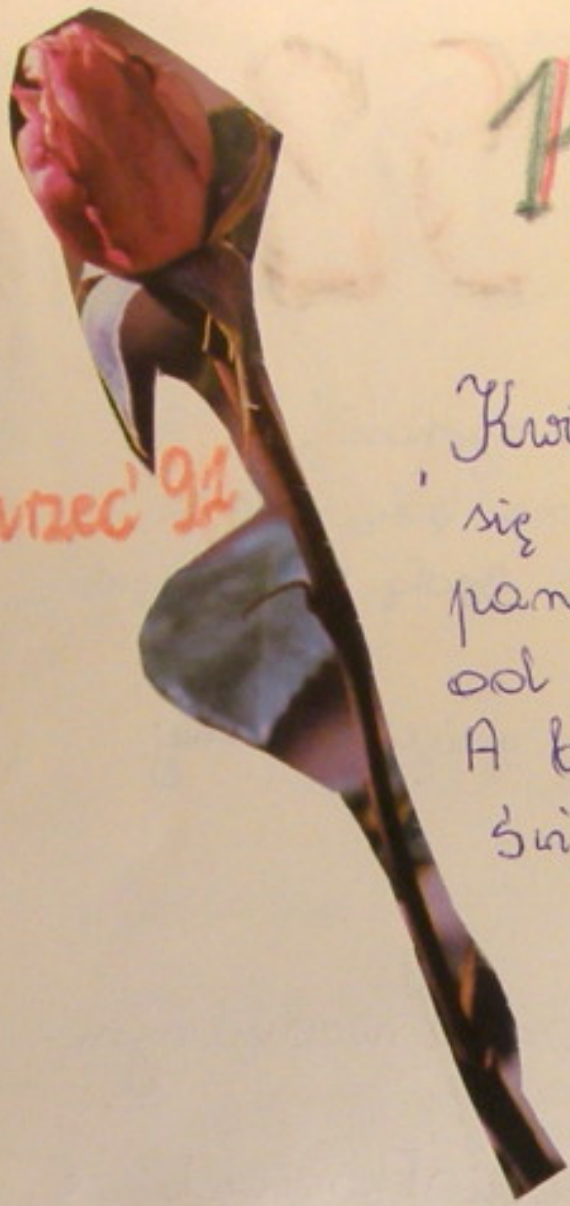 1
rzeć 91
Kwi
się
pam
od
A k
świ